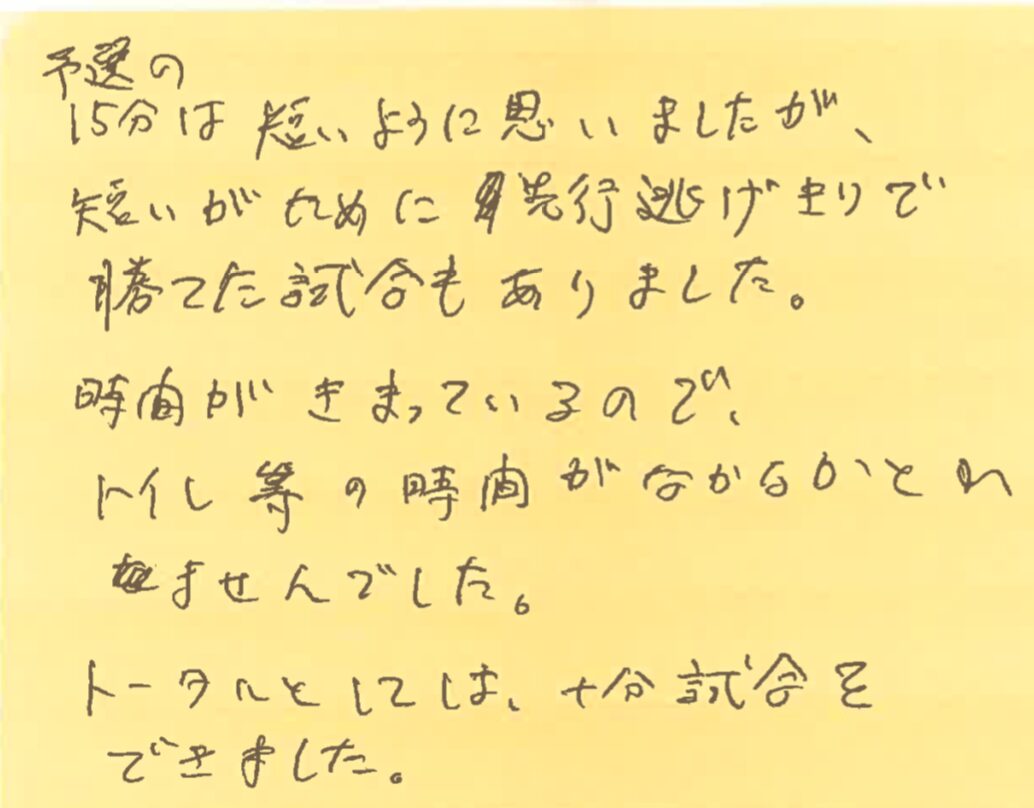 予選の
15分は短いように思いましたが、
短いがために先行逃げ切りで
勝てた試合もありました。
時間がきまっているので、
トイレ等の時間がなかなかとれ
ませんでした。
トータルとしては、十分試合を
できました。